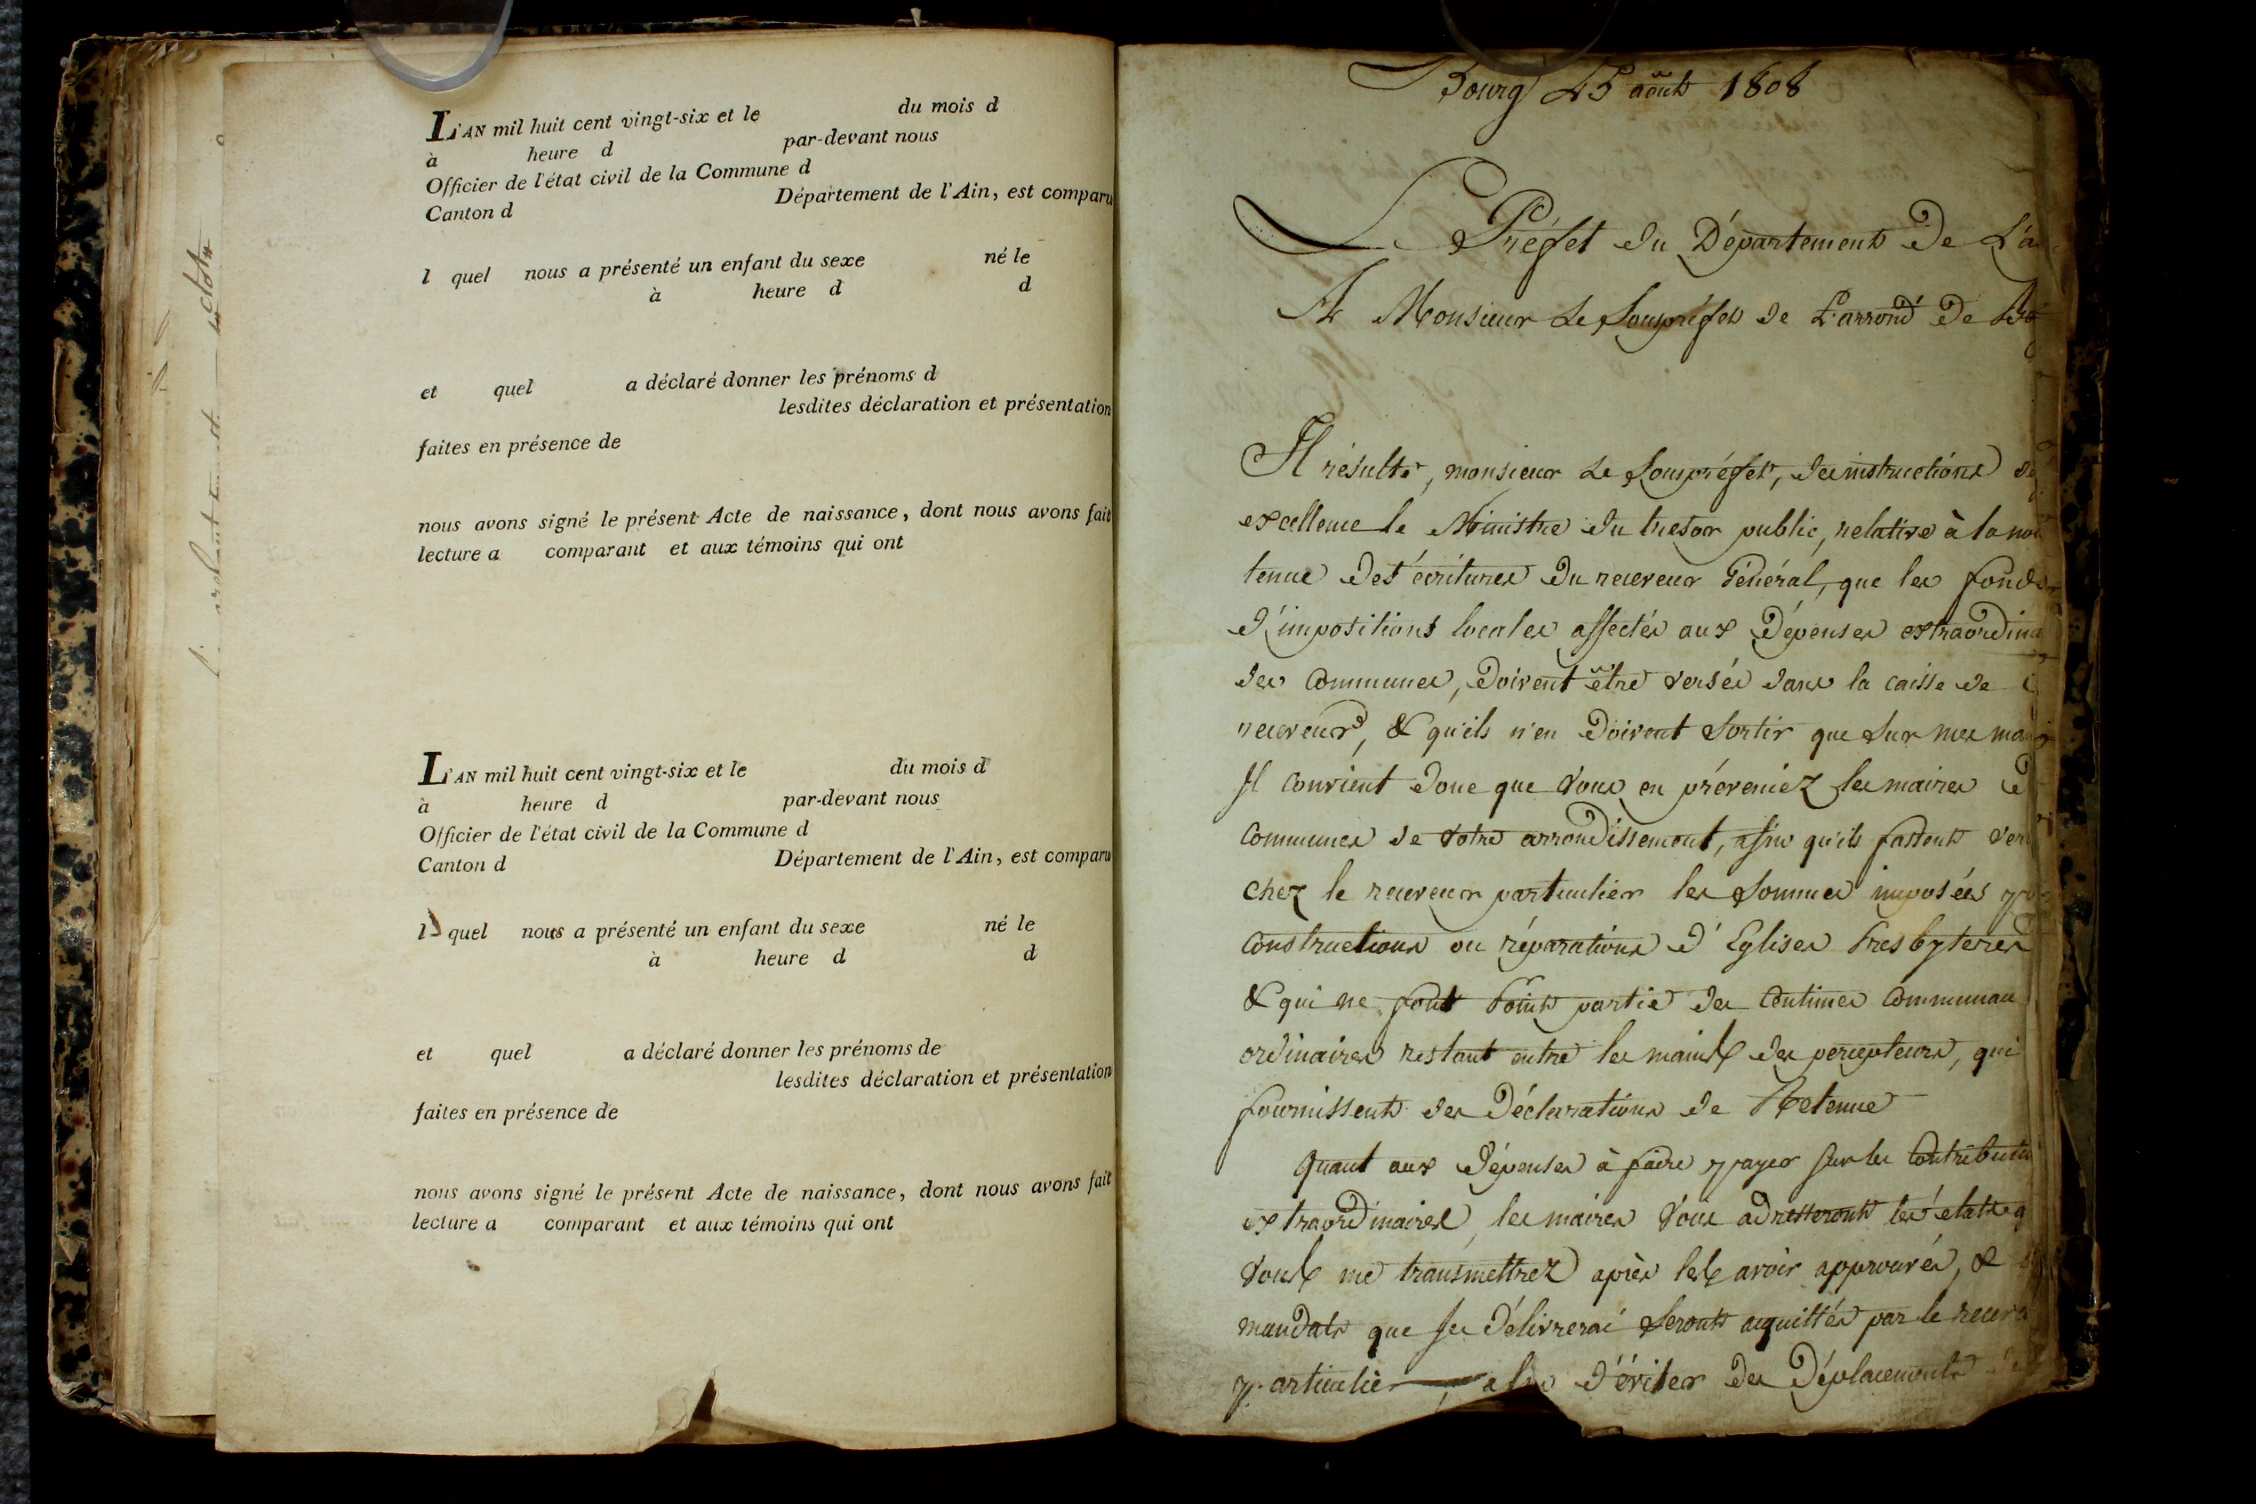 L'AN mil huit cent vingt-six et le du mois d
à heure d par-devant nous
Officier de l'état civil de la Commune d
Canton d Département de l'Ain, est comparu
l quel nous a présenté un enfant du sexe né le
à heure d d
et quel a déclaré donner les prénoms d
lesdites déclaration et présentation
faites en présence de
nous avons signé le présent Acte de naissance, dont nous avons fait
lecture a comparant et aux témoins qui ont
L'AN mil huit cent vingt-six et le du mois d
à heure d par-devant nous
Officier de l'état civil de la Commune d
Canton d Département de l'Ain, est comparu
l quel nous a présenté un enfant du sexe né le
à heure d d
et quel a déclaré donner les prénoms de
lesdites déclaration et présentation
faites en présence de
nous avons signé le présent Acte de naissance, dont nous avons fait
lecture a comparant et aux témoins qui ont
Bourg 25 août 1808
Le Préfet du Département de L'a
A Monsieur Le Souspréfet de L'arrond de
Il résulte, monsieur Le Souspréfet, des instructions de
excellence le Ministre du tresor public, relative à la nou
tenue des écritures du receveur Général, que les fonds
d'impositions locales affectés aux Dépenses extraordina
des Communes, doivent être versés dans la caisse de
receveur, & qu'ils n'en doivent sortir que sur mes man
Il convient donc que vous en préveniez les maires d
communes de votre arrondissement, afin qu'ils fassent ver
chez le receveur particulier les sommes imposées p
constructions ou réparations d'Eglises Presbyteres
& qui ne font point partie des centimes communau
ordinaires restant entre les mains des percepteurs, qui
fournissent des Déclarations de Retenue
Quant aux dépenses à faire payer sur les contributi
extraordinaires, les maires vous adresseront les états q
vous me transmettrez après les avoir approuvés, &
mandats que je délivrerai seront acquittés par le recev
particulier, afin d'éviter des Déplacements